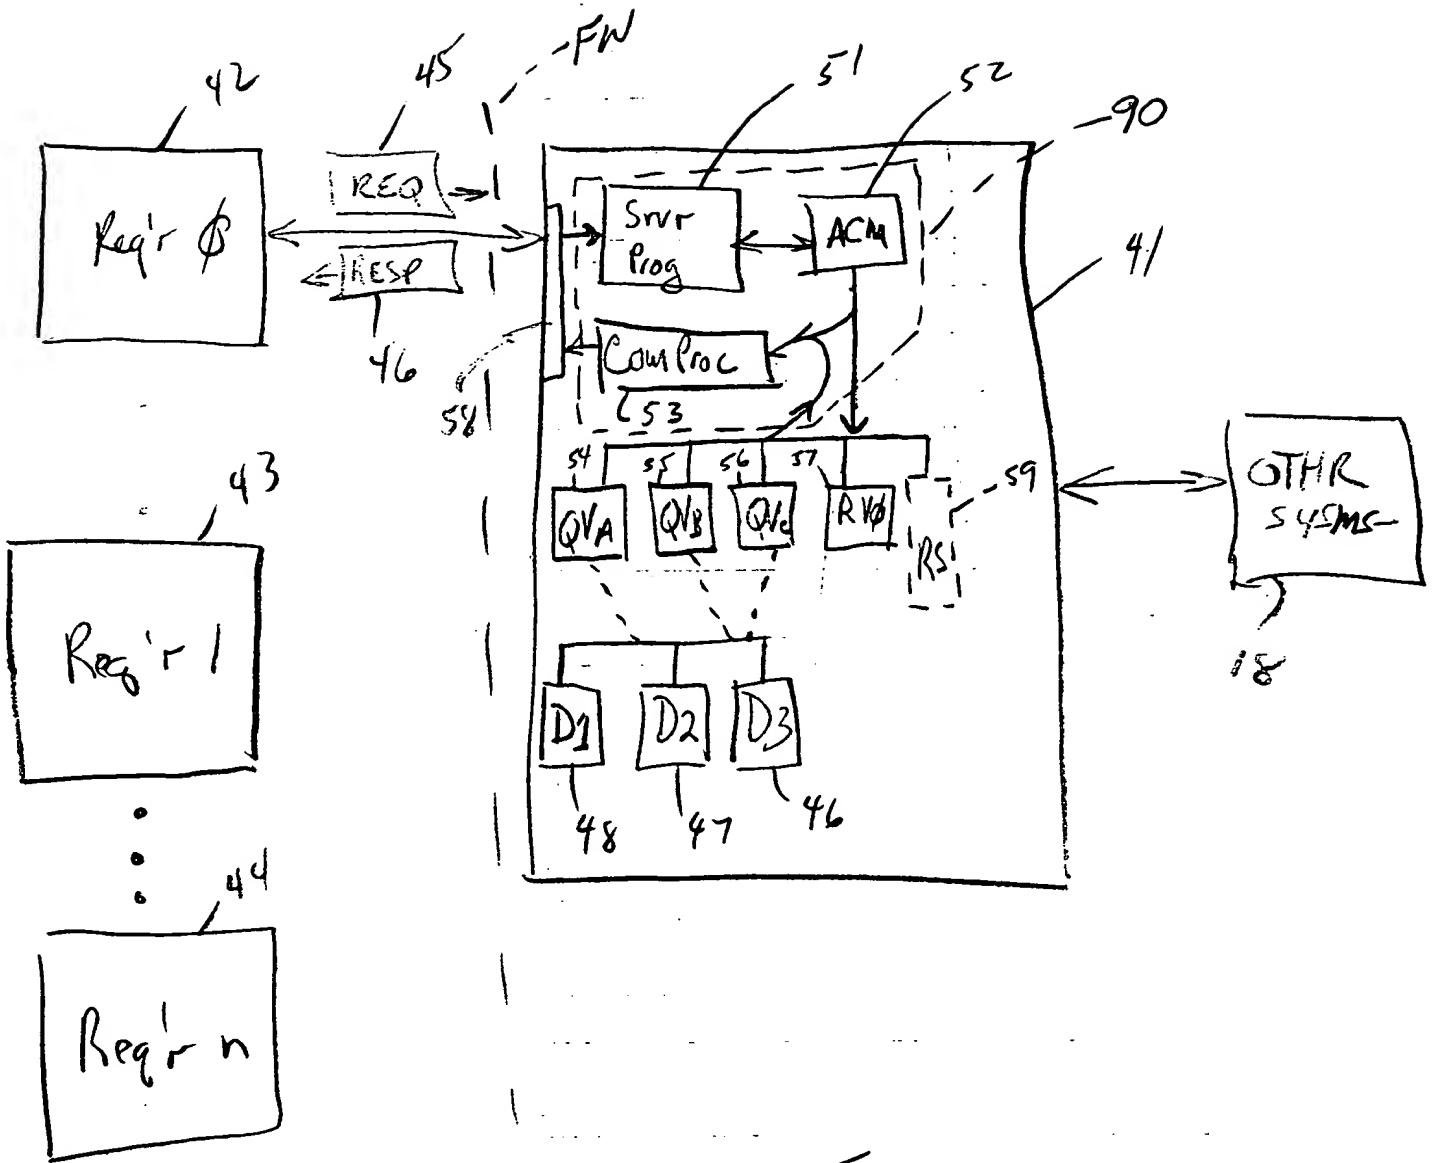 FW
42
45
51
52
90
REQ
Req'r ∅
RESP
Srvr
Prog
ACM
41
46
58
ComProc
53
54
55
56
57
59
QVA
QVB
QVC
RV∅
RS
OTHR
SYSMS
18
43
Req'r 1
D1
D2
D3
48
47
46
44
Req'r n